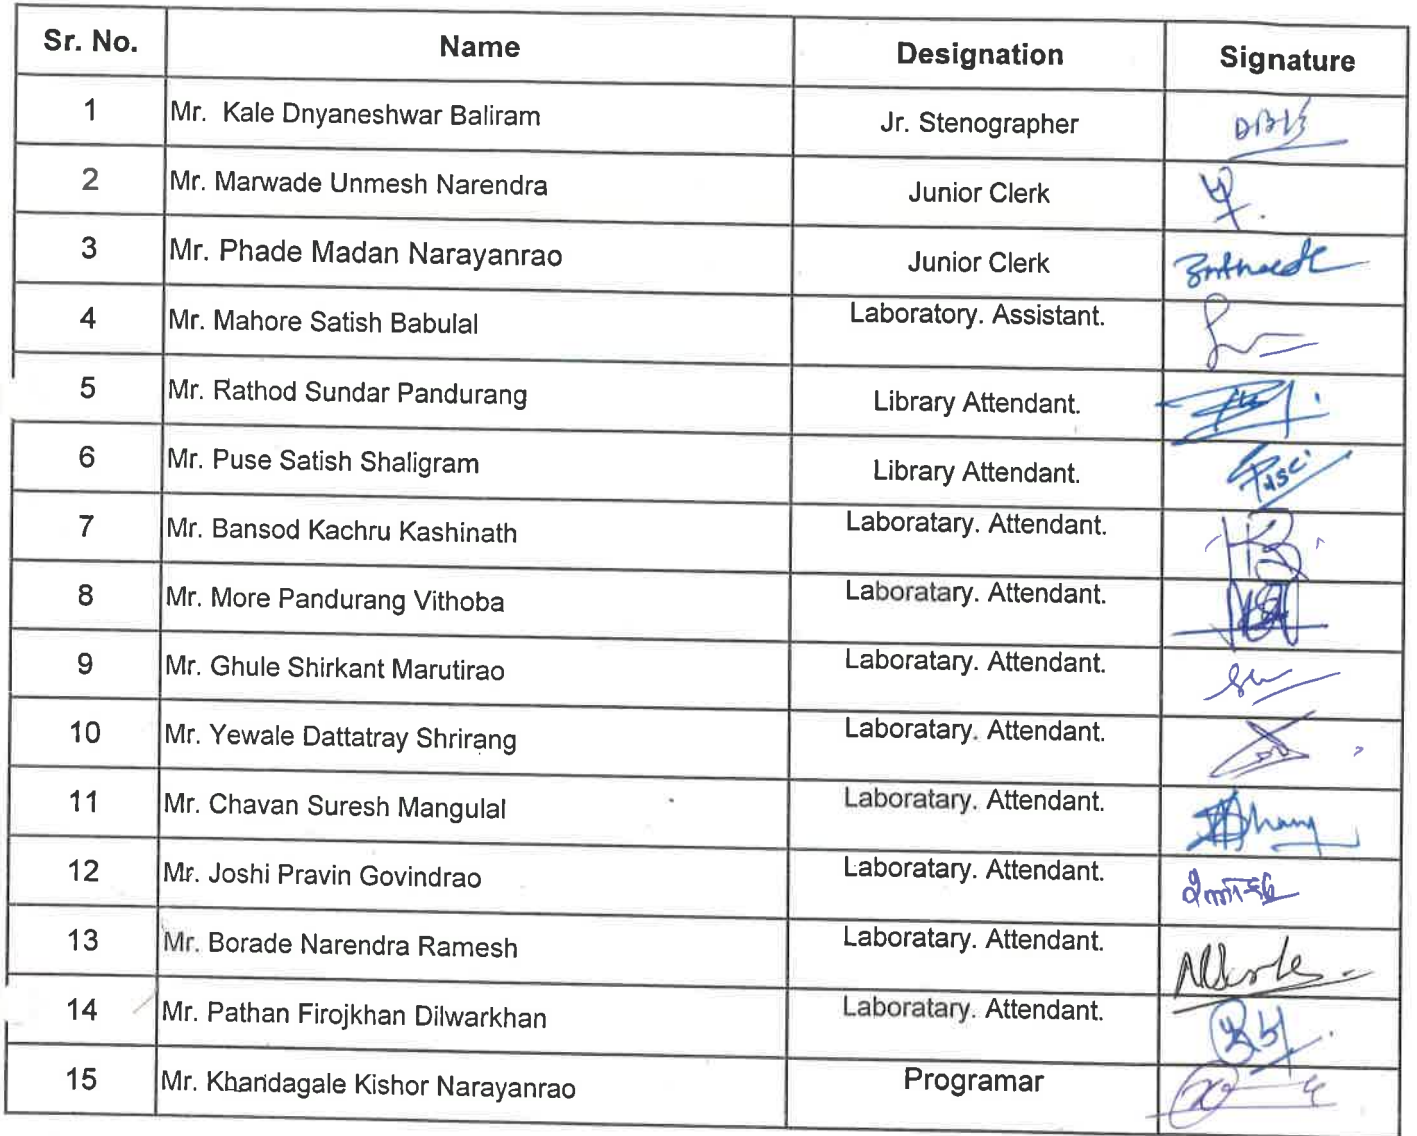 Sr. No. Name Designation Signature
1 Mr. Kale Dnyaneshwar Baliram Jr. Stenographer DBK
2 Mr. Marwade Unmesh Narendra Junior Clerk
3 Mr. Phade Madan Narayanrao Junior Clerk
4 Mr. Mahore Satish Babulal Laboratory. Assistant.
5 Mr. Rathod Sundar Pandurang Library Attendant.
6 Mr. Puse Satish Shaligram Library Attendant.
7 Mr. Bansod Kachru Kashinath Laboratary. Attendant.
8 Mr. More Pandurang Vithoba Laboratary. Attendant.
9 Mr. Ghule Shirkant Marutirao Laboratary. Attendant.
10 Mr. Yewale Dattatray Shrirang Laboratary. Attendant.
11 Mr. Chavan Suresh Mangulal Laboratary. Attendant.
12 Mr. Joshi Pravin Govindrao Laboratary. Attendant.
13 Mr. Borade Narendra Ramesh Laboratary. Attendant.
14 Mr. Pathan Firojkhan Dilwarkhan Laboratary. Attendant.
15 Mr. Khandagale Kishor Narayanrao Programar